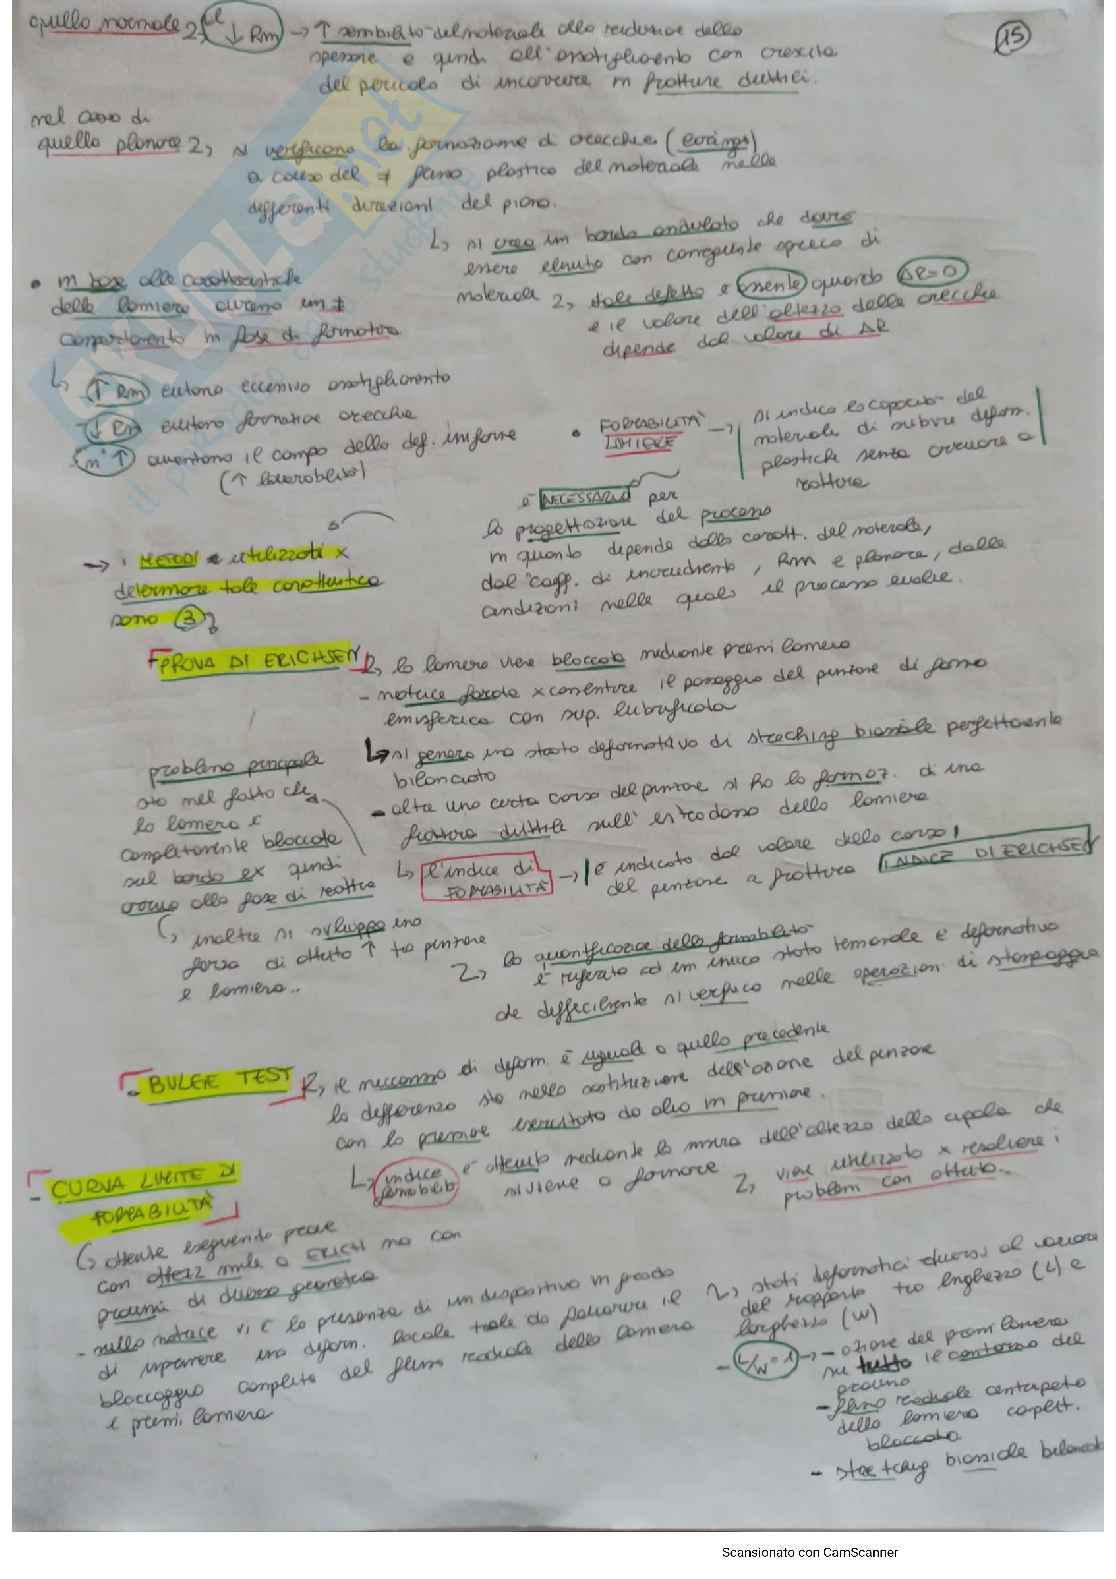 quello normale ↓ Rm → ↑ sensibilità del materiale alla riduzione dello
spessore e quindi all'assottigliamento con crescita
del pericolo di incorrere in fratture duttili.
15
nel caso di
quello planare si verificano la formazione di orecchie (earings)
a causa del ≠ flusso plastico del materiale nelle
differenti direzioni del piano.
↳ si crea un bordo ondulato che dovrà
essere eliminato con conseguente spreco di
materiale tale difetto è assente quando ΔR=0
e il valore dell'altezza delle orecchie
dipende dal valore di ΔR
• in base alle caratteristiche
della lamiera avremo un ≠
comportamento in fase di formatura
↳ ↑ Rm evitano eccessivo assottigliamento
↓ Rm evitano formazione orecchie
n ↑ aumentano il campo delle def. uniforme
(↑ lavorabilità)
• FORMABILITÀ LAMIERE → si indica la capacità del
materiale di subire deform.
plastiche senza arrivare a
rottura
è NECESSARIO per
la progettazione del processo
in quanto dipende dalle caratt. del materiale,
dal coeff. di incrudimento, Rm e planare, dalle
condizioni nelle quali il processo evolve.
→ i METODI utilizzati x
determinare tale caratteristica
sono 3
PROVA DI ERICHSEN la lamiera viene bloccata mediante premi lamiera
- matrice forata x consentire il passaggio del punzone di forma
emisferica con sup. lubrificata
↳ si genera uno stato deformativo di streching biassiale perfettamente
bilanciato
- oltre una certa corsa del punzone si ha la formaz. di una
frattura duttile sull'estradosso della lamiera
↳ l'indice di FORMABILITÀ → è indicato dal valore della corsa
del punzone a frattura INDICE DI ERICHSEN
problema principale
sta nel fatto che
la lamiera è
completamente bloccata
sul bordo ex quindi
arriva alla fase di rottura
↳ inoltre si sviluppa una
forza di attrito ↑ tra punzone
e lamiera..
la quantificazione della formabilità
è riferita ad un unico stato tensionale e deformativo
che difficilmente si verifica nelle operazioni di stampaggio
- BULGE TEST il meccanismo di deform. è uguale a quello precedente
la differenza sta nella sostituzione dell'azione del punzone
con la pressione esercitata da olio in pressione.
↳ indice formabilità è ottenuto mediante la misura dell'altezza della cupola che
si viene a formare viene utilizzato x risolvere i
problemi con attrito..
- CURVA LIMITE DI
FORMABILITÀ
↳ ottenute eseguendo prove
con attrezz simile a ERICH ma con
provini di diversa geometria
- nella matrice vi è la presenza di un dispositivo in grado
di imprimere una deform. locale tale da favorire il
bloccaggio completo del flusso radiale della lamiera
e premi lamiera
stati deformativi diversi al variare
del rapporto tra lunghezza (L) e
larghezza (W)
- L/W = 1 → - azione del premi lamiera
su tutto il contorno del
provino
- flusso radiale centripeto
della lamiera complet.
bloccata
- streching biassiale bilanciato
Scansionato con CamScanner